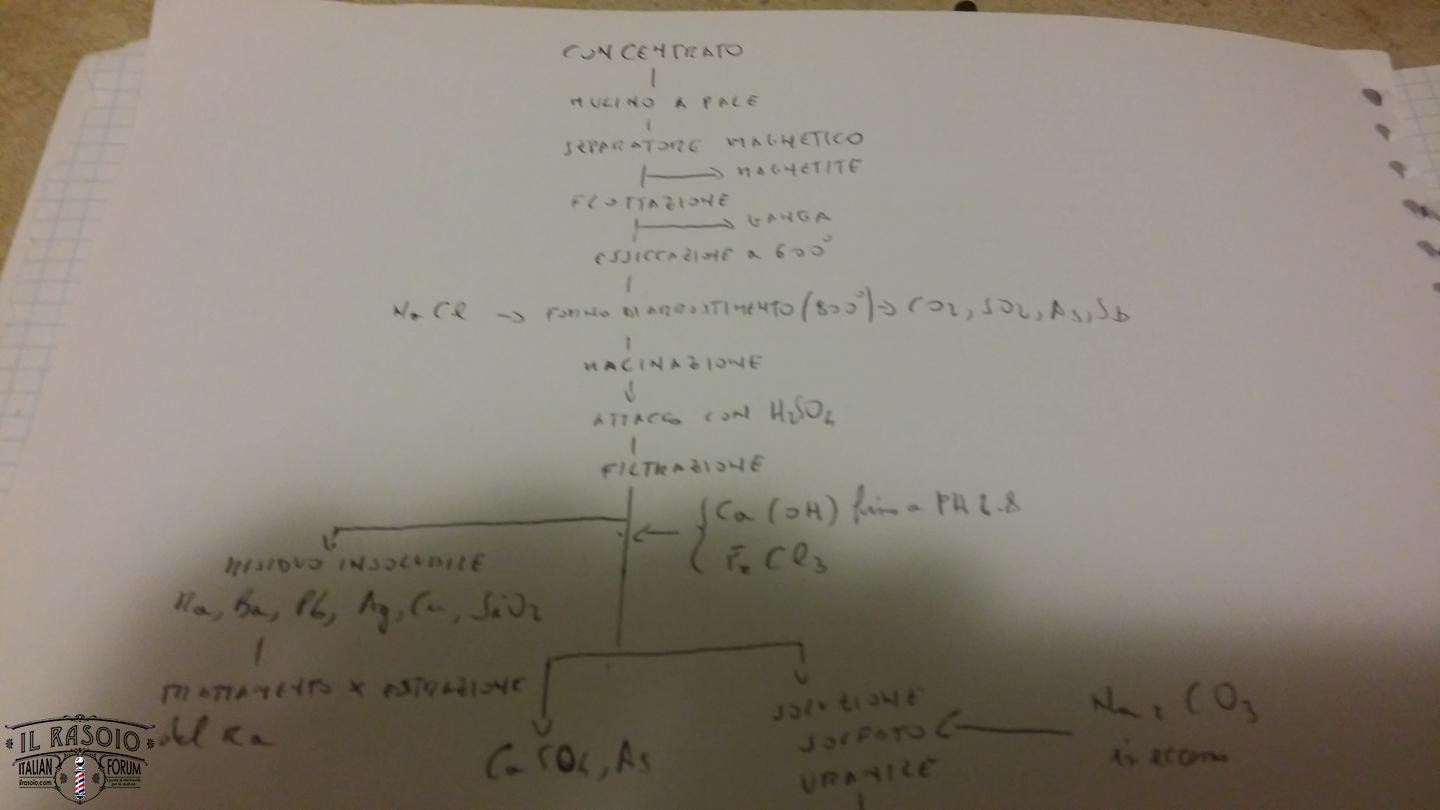 CONCENTRATO
MULINO A PALE
SEPARATORE MAGNETICO
MAGNETITE
FLOTTAZIONE
GANGA
ESSICCAZIONE a 600°
NaCl → FORNO DI ARROSTIMENTO (800°) → CO2, SO2, As, Sb
MACINAZIONE
ATTACCO CON H2SO4
FILTRAZIONE
Ca (OH) fino a PH 2.8
FeCl3
RESIDUO INSOLUBILE
Ra, Ba, Pb, Ag, Cu, SiO2
TRATTAMENTO X ESTRAZIONE
del Ra
CaSO4, As
SOLUZIONE
SOLFATO
URANILE
Na2CO3
in eccesso
IL RASOIO
ITALIAN FORUM
ilrasoio.com